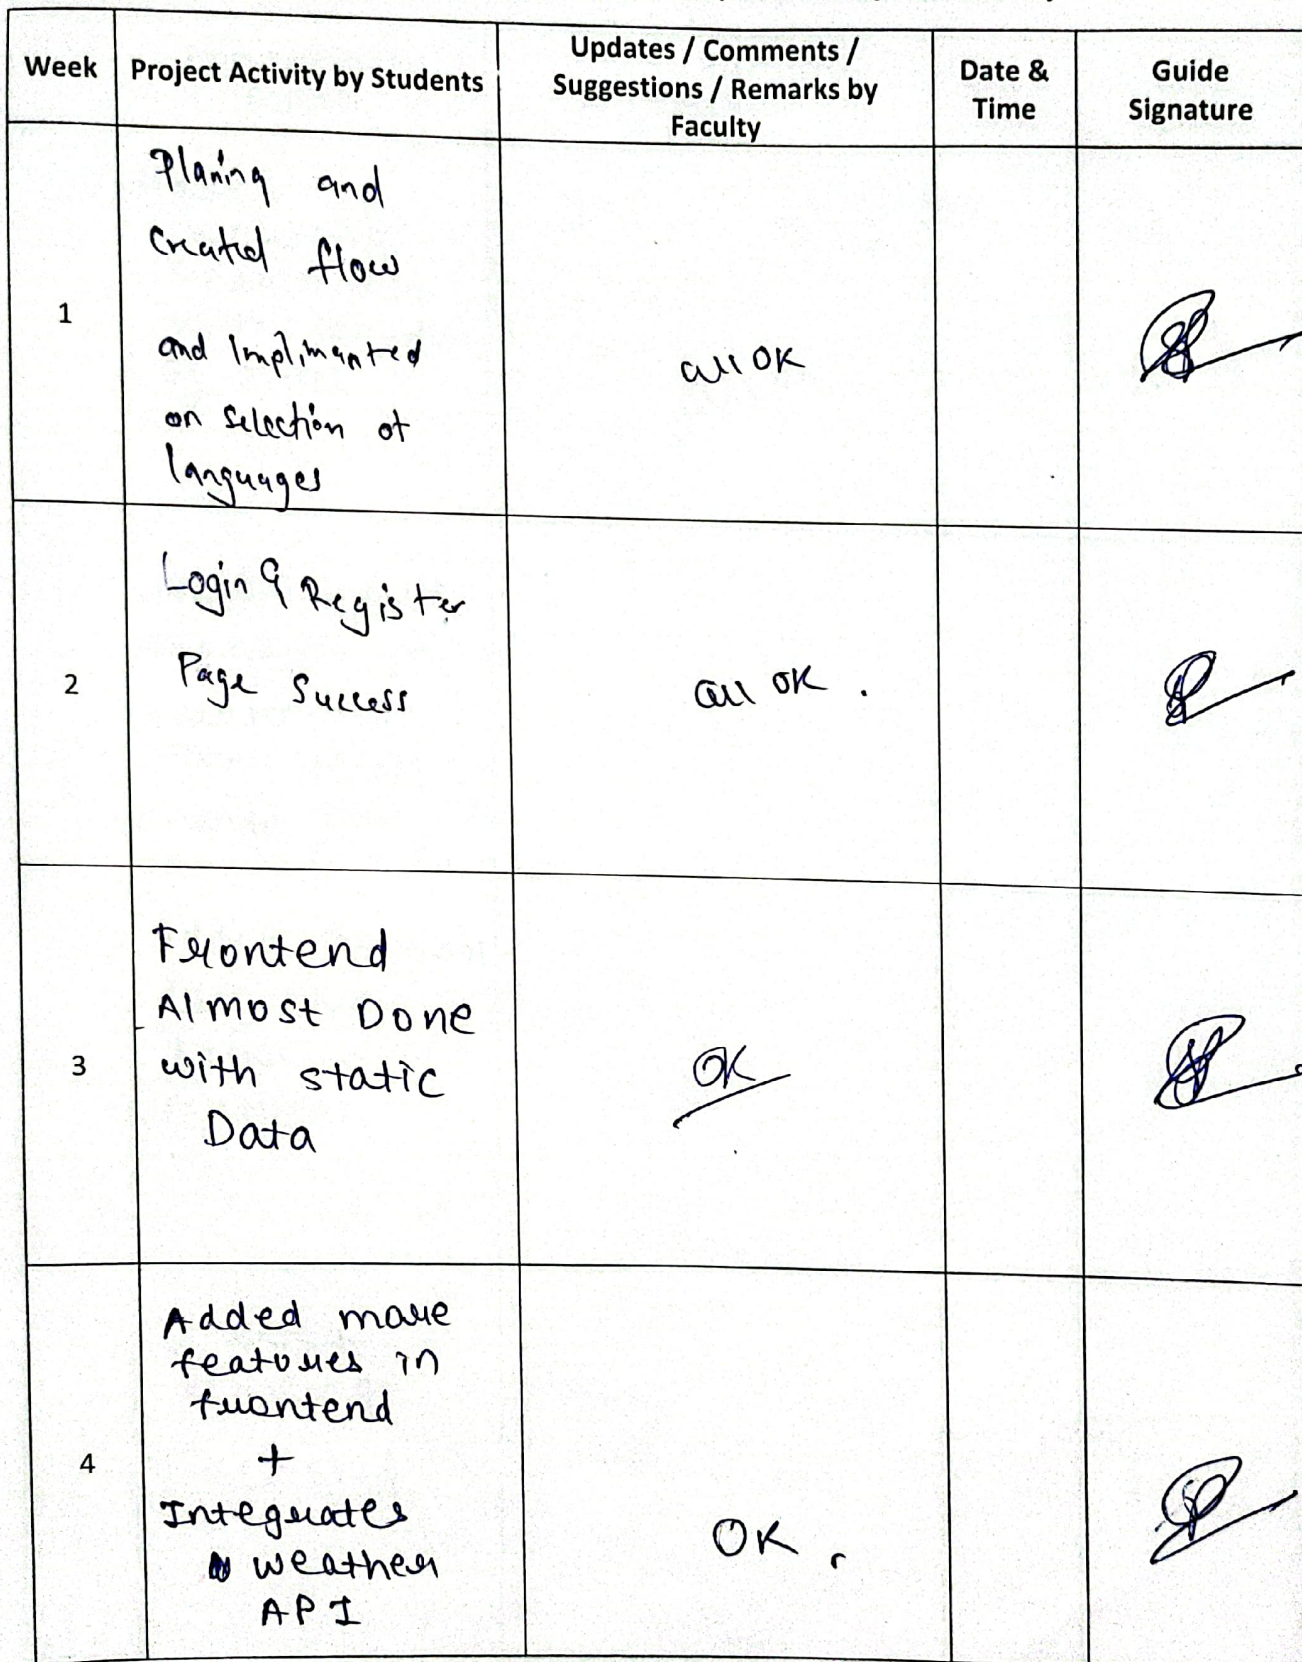 Week
Project Activity by Students
Updates / Comments /
Suggestions / Remarks by
Faculty
Date &
Time
Guide
Signature
1
Planing and
Created flow
and Implimanted
on Selection of
languages
all OK
2
Login & Register
Page Success
all OK .
3
Frontend
Almost Done
with static
Data
OK
4
Added more
features in
frontend
+
Integrates
weather
API
OK .